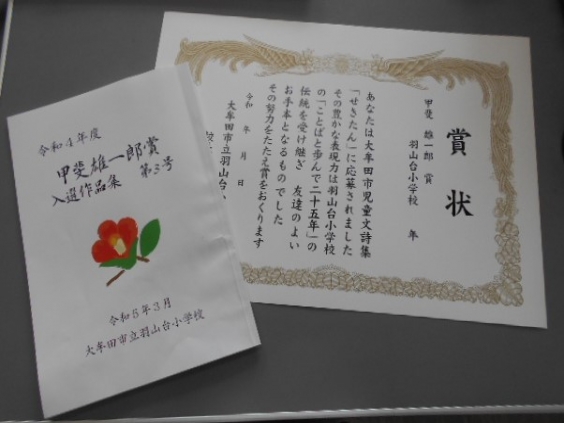 令和4年度
甲斐雄一郎賞
入選作品集 第3号
令和5年3月
大牟田市立羽山台小学校
賞状
甲斐 雄一郎 賞
羽山台小学校 年
あなたは大牟田市児童文詩集
「せきたん」に応募されました
その豊かな表現力は羽山台小学校
の「ことばと歩んで二十五年」の
伝統を受け継ぎ 友達のよい
お手本となるものでした
その努力をたたえ賞をおくります
令和 年 月 日
大牟田市立羽山台小